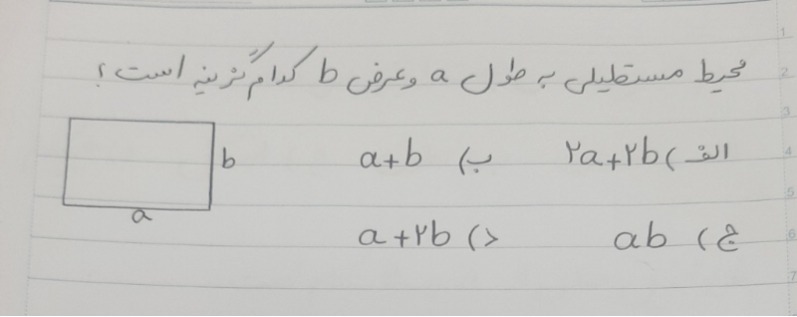 محیط مستطیلی به طول a و عرض b کدام گزینه است؟
الف) ۲a+۲b ب) a+b
ج) ab د) a+۲b
b
a
1
2
3
4
5
6
7